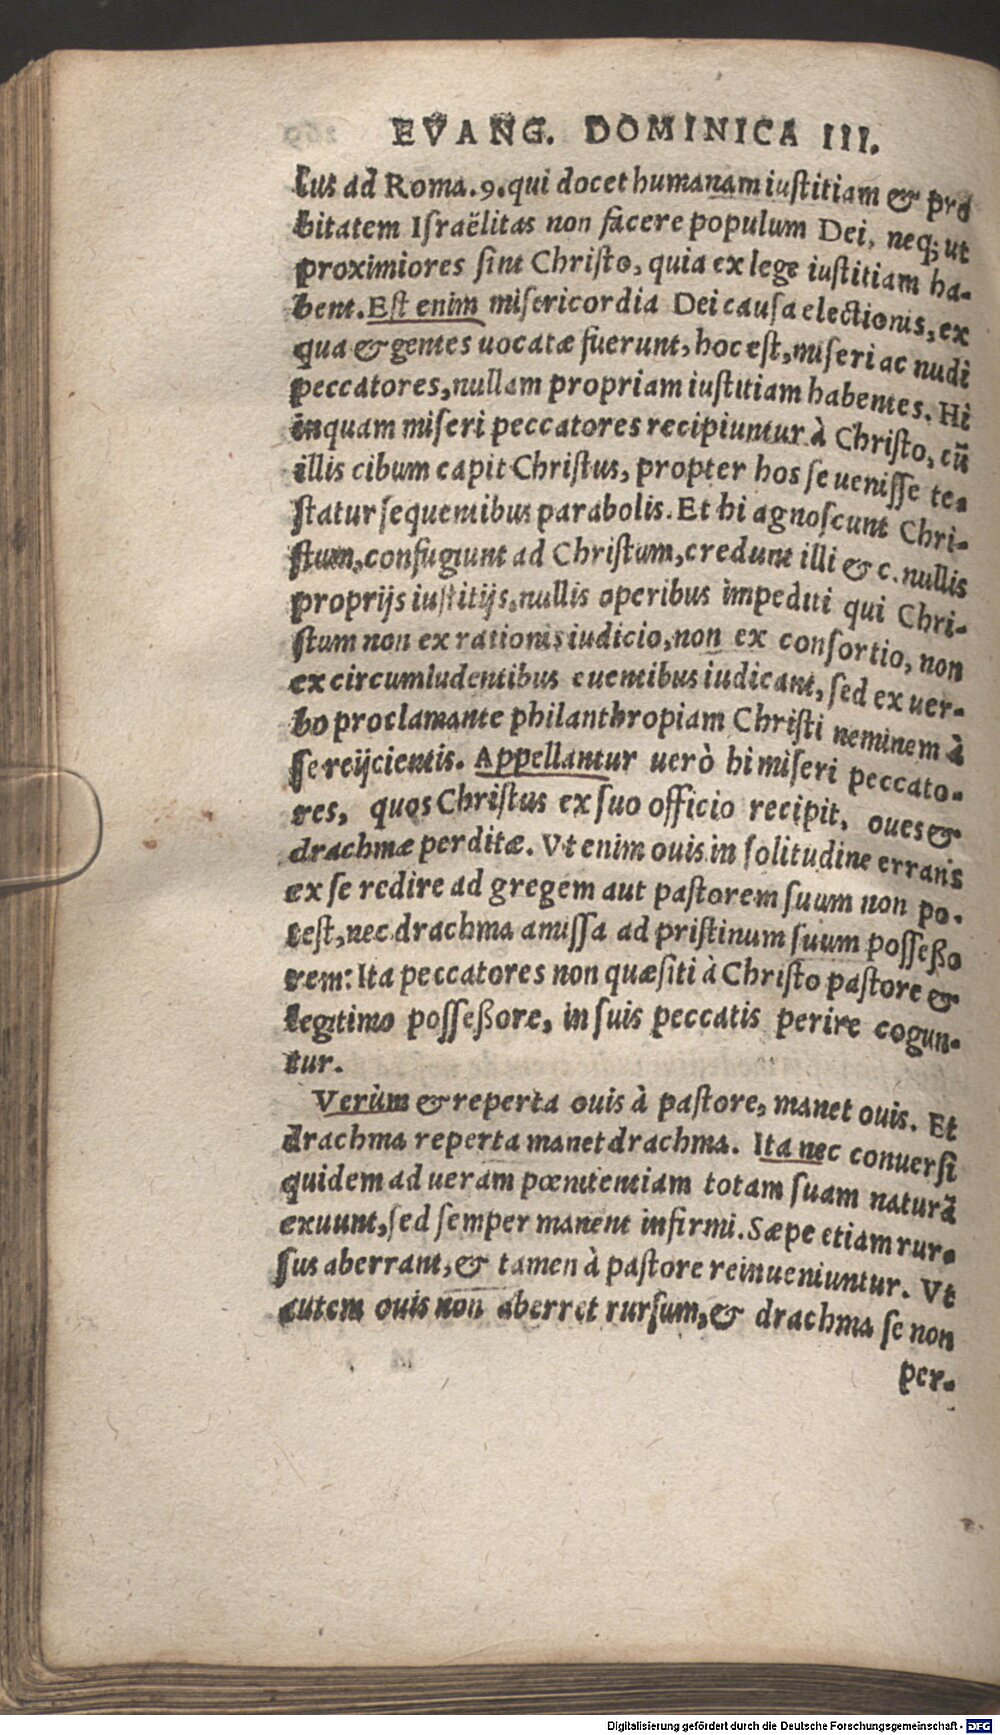 EVANG. DOMINICA III.
lus ad Roma. 9. qui docet humanam iustitiam & pro
bitatem Israëlitas non facere populum Dei, neq; ut
proximiores sint Christo, quia ex lege iustitiam ha-
bent. Est enim misericordia Dei causa electionis, ex
qua & gentes uocatæ fuerunt, hoc est, miseri ac nudi
peccatores, nullam propriam iustitiam habentes. Hi
inquam miseri peccatores recipiuntur à Christo, cū
illis cibum capit Christus, propter hos se uenisse te-
statur sequentibus parabolis. Et hi agnoscunt Chri-
stum, confugiunt ad Christum, credunt illi & c. nullis
proprijs iustitijs, nullis operibus impediti qui Chri-
stum non ex rationis iudicio, non ex consortio, non
ex circumludentibus euentibus iudicant, sed ex uer-
bo proclamante philanthropiam Christi neminem à
se reijcientis. Appellantur uerò hi miseri peccato-
res, quos Christus ex suo officio recipit, oues &
drachmæ perditæ. Vt enim ouis in solitudine errans
ex se redire ad gregem aut pastorem suum non po-
test, nec drachma amissa ad pristinum suum posseßo
rem: Ita peccatores non quæsiti à Christo pastore &
legitimo posseßore, in suis peccatis perire cogun-
tur.
Verùm & reperta ouis à pastore, manet ouis. Et
drachma reperta manet drachma. Ita nec conuersi
quidem ad ueram pœnitentiam totam suam naturā
exuunt, sed semper manent infirmi. Sæpe etiam rur-
sus aberrant, & tamen à pastore reinueniuntur. Vt
autem ouis non aberret rursum, & drachma se non
per-
Digitalisierung gefördert durch die Deutsche Forschungsgemeinschaft - DFG